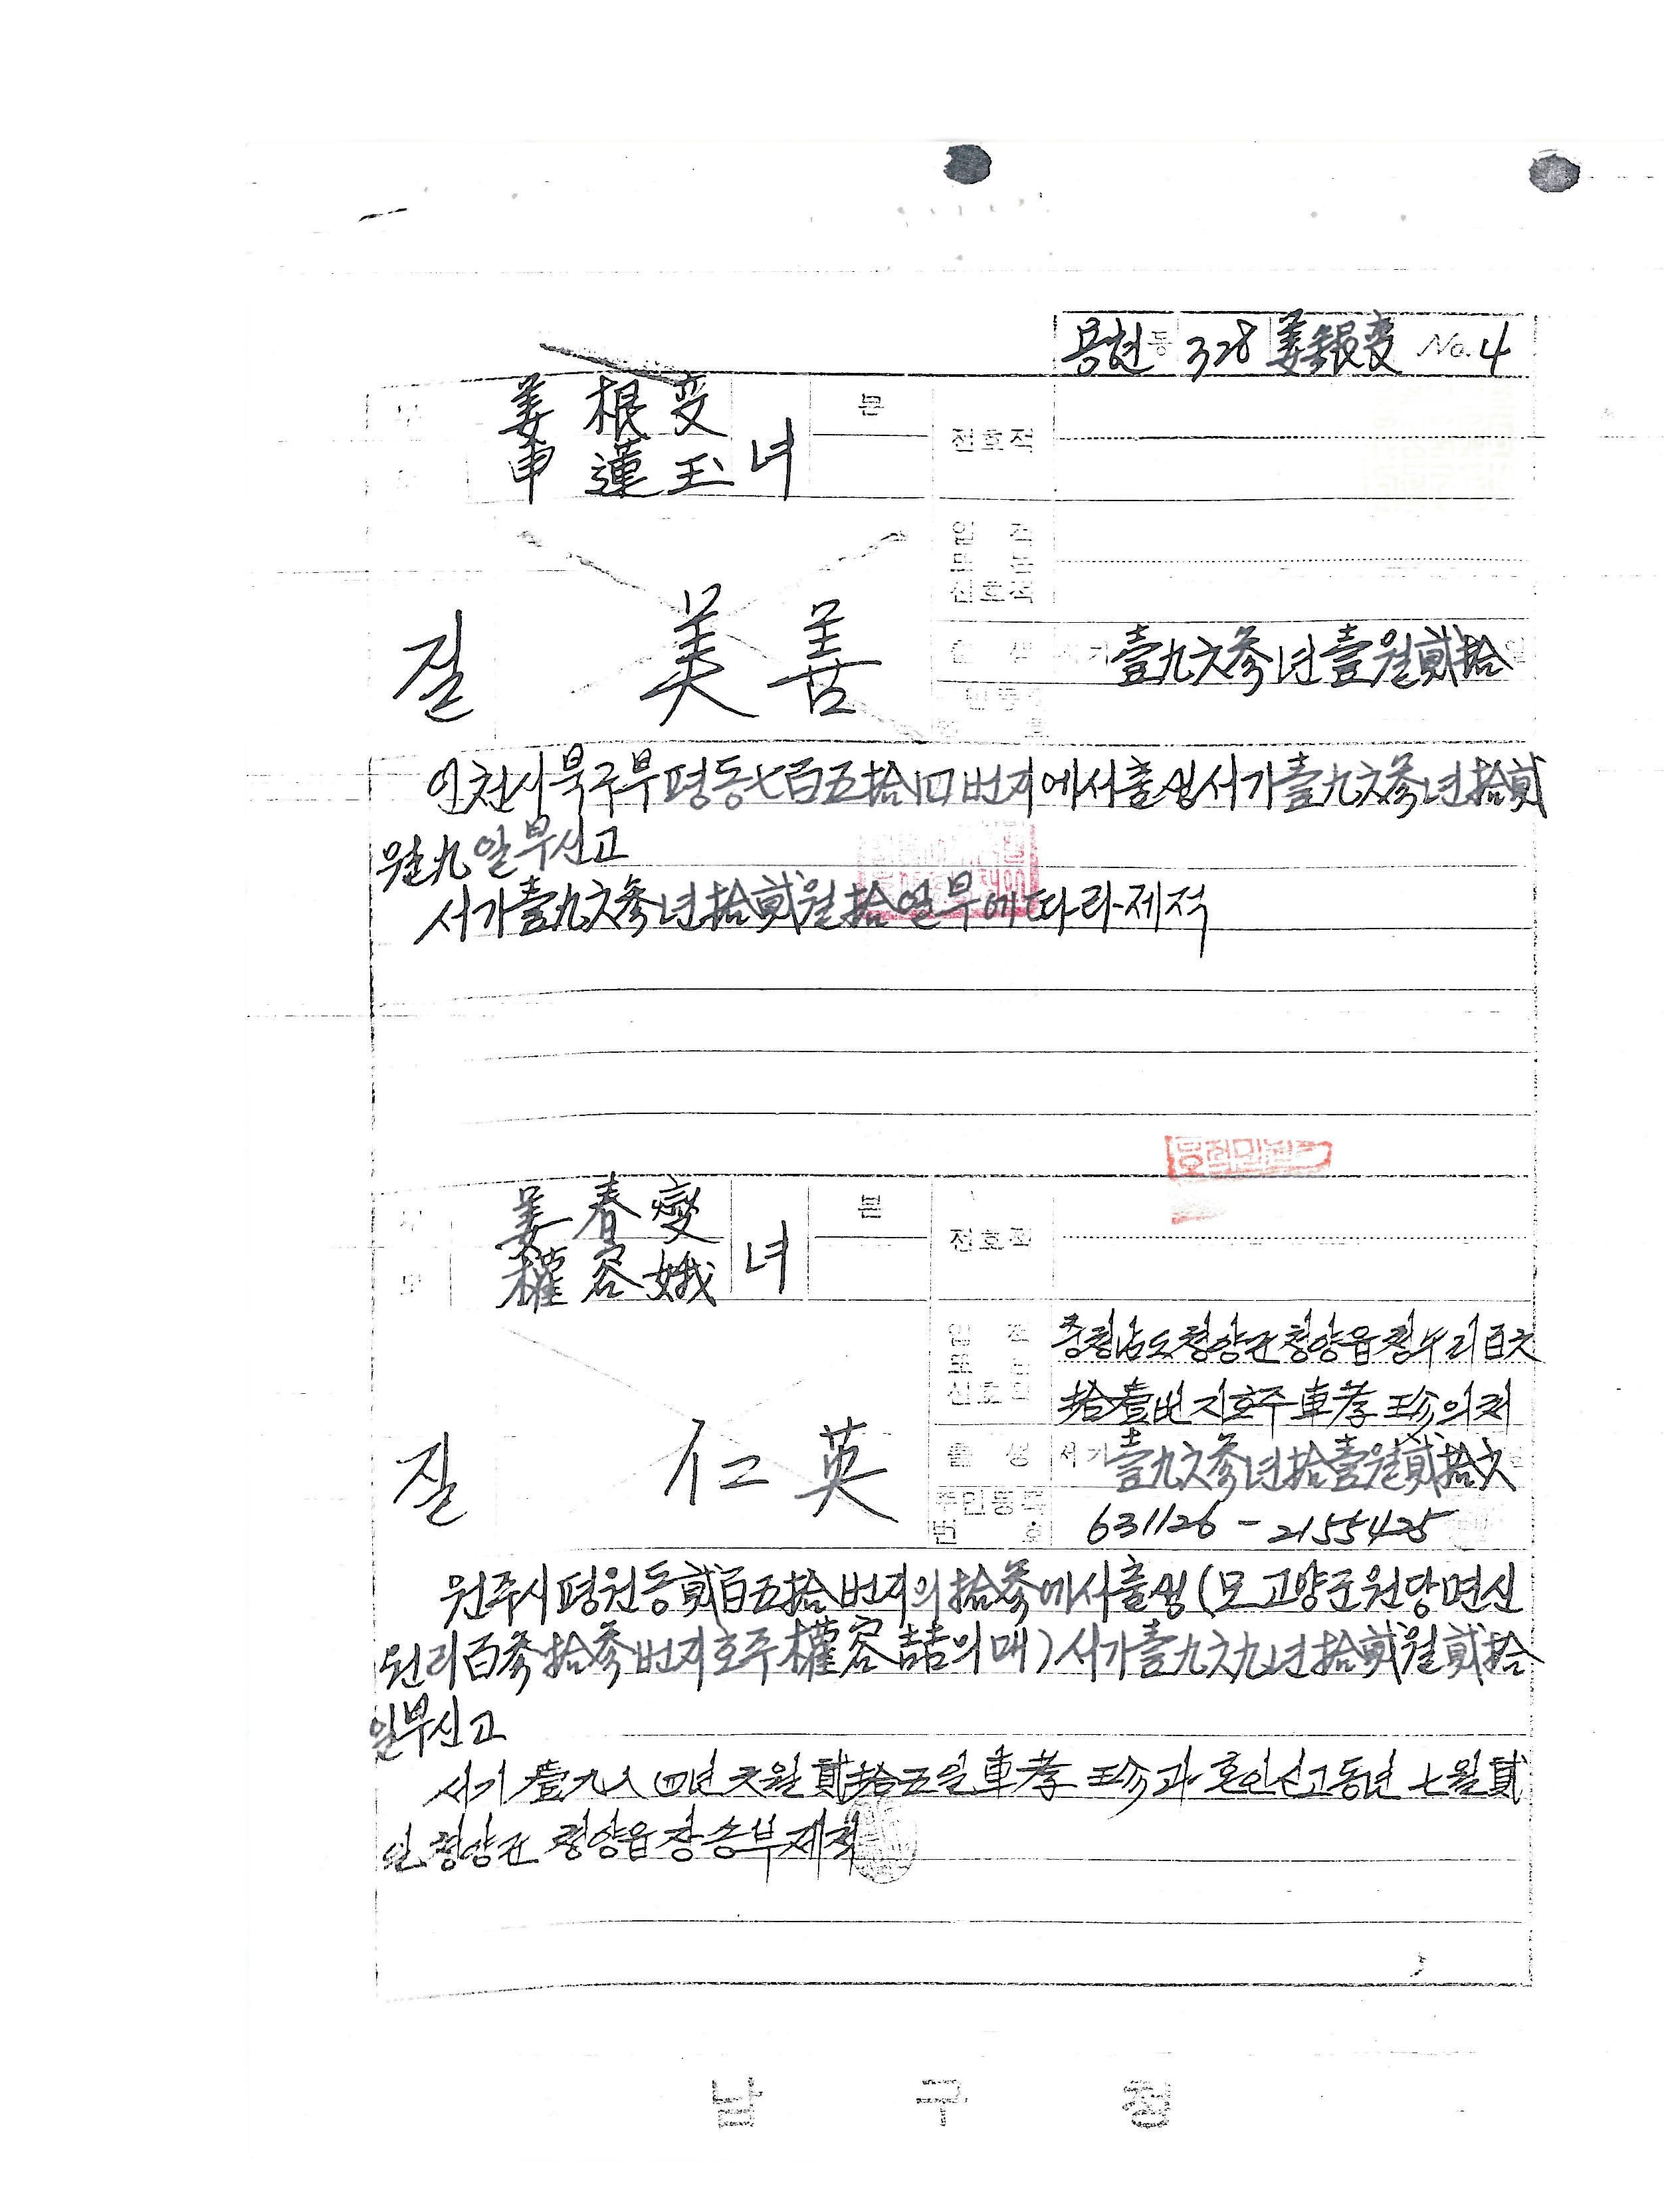 용현동 328 姜銀変 No. 4
부 姜根変 녀 본
모 申蓮玉
전호적
입적
또는
신호적
질 美善
출생 서기 壹九六参년壹월貳拾일
인천시북구부평동七百五拾四번지에서출생서기壹九六参년拾貳
월九일부신고
서기壹九六参년拾貳월拾일부에따라제적
부 姜春燮 녀 본
모 權容娥
전호적
입적
또는
신호적
충청남도청양군청양읍청수리百六
拾壹번지호주車孝珍의처
질 仁英
출생 서기 壹九六参년拾壹월貳拾六일
주민등록
번호 631126-2155425
원주시평원동貳百五拾번지의拾参에서출생(모고양군원당면신
원리百参拾参번지호주權容喆의매)서기壹九六九년拾貳월貳拾
일부신고
서기壹九八四년六월貳拾五일車孝珍과혼인신고동년七월貳
일청양군청양읍장송부제적
남구청